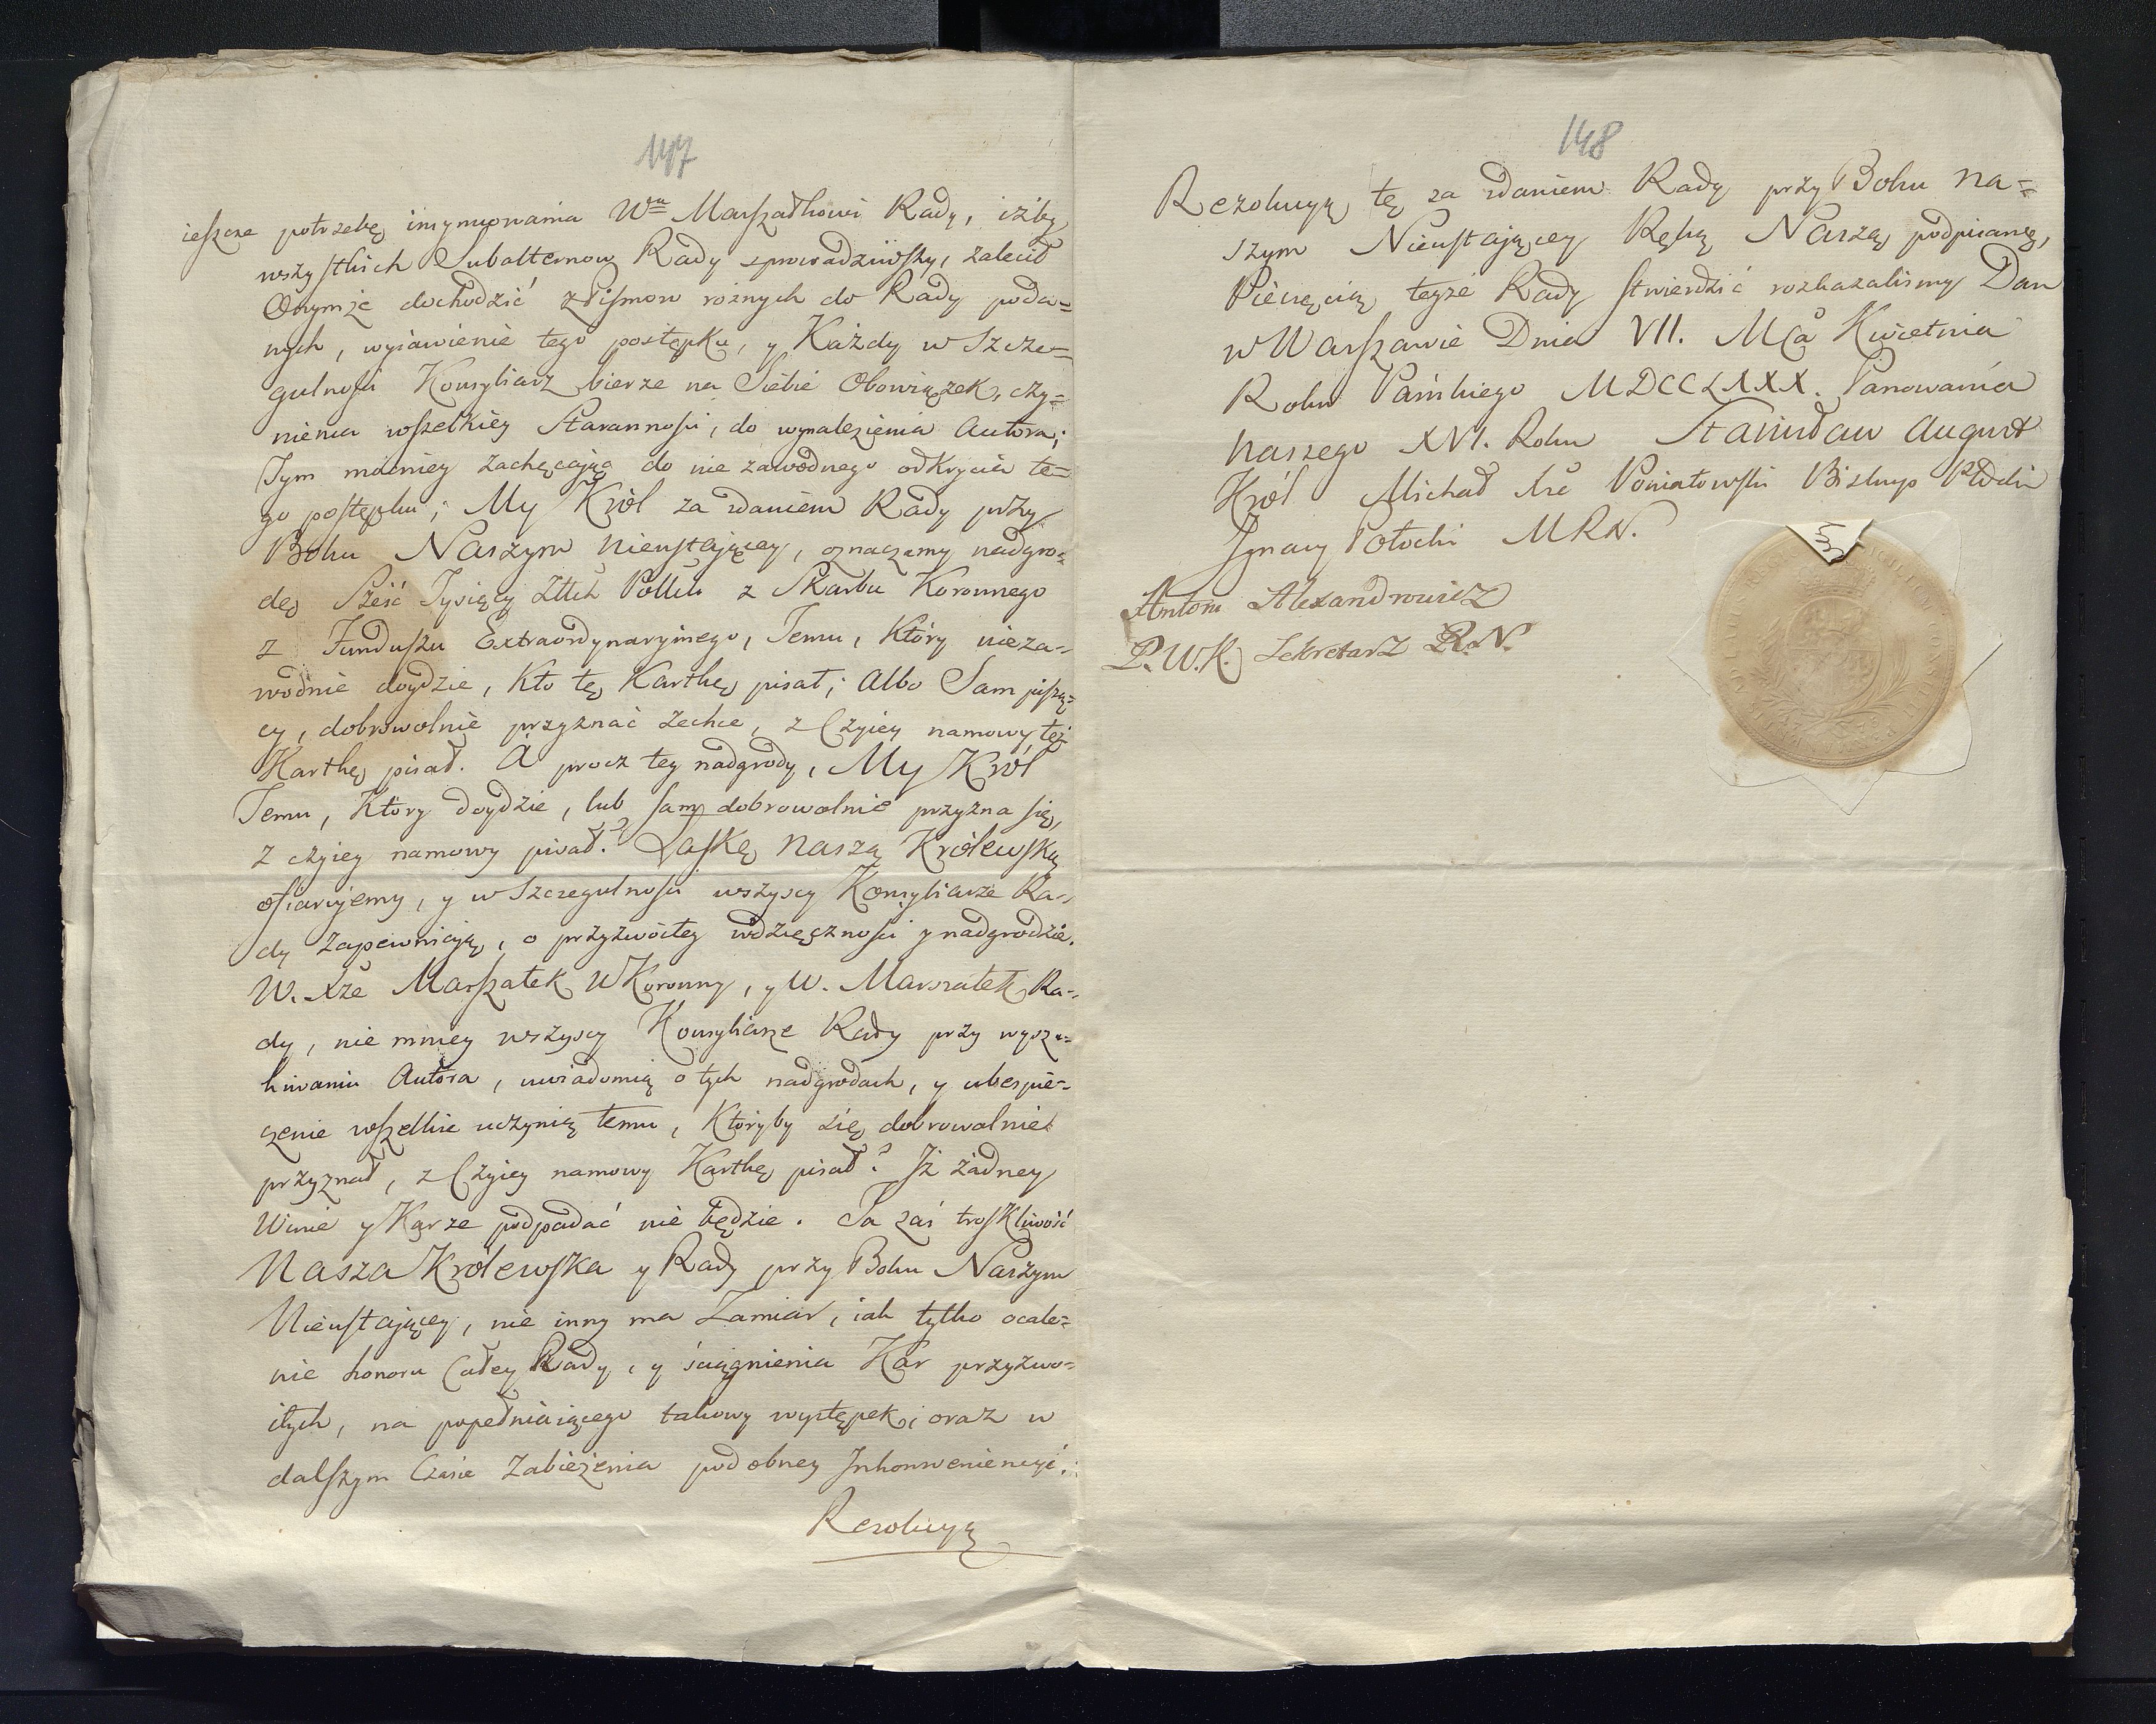 147
ieszcze potrzebę insynuowania Wu Marszałkowi Rady, iżby
wszystkich Subalternow Rady sprowadziwszy, zalecił
Onymże dochodzić z Pismow rożnych do Rady poda=
nych, wyiawienie tego postępku, y Każdy w Szcze=
gulności Konsyliarz bierze na Siebie Obowiązek, czy=
nienia wszelkiey Starannosci, do wynalezienia Autora;
Tym mocniey zachęcaiąc do nie zawodnego odkrycia te=
go postępku; My Król za zdaniem Rady przy
Boku Naszym Nieustaiącey, oznaczamy nadgro=
dę Sześć Tysięcy Złłch Pollch z Skarbu Koronnego
z Funduszu Extraordynaryinego, Temu, Który nieza=
wodnie doydzie, Kto tę Kartkę pisał; Albo Sam piszą=
cy, dobrowolnie przyznać zechce, z Czyiey namowy też
Kartkę pisał. A procz tey nadgrody, My Król
Temu, Ktory doydzie, lub sam dobrowolnie przyzna się,
z czyiey namowy pisał? Łaskę Naszą Królewską
ofiaruiemy, y w Szczegulności wszyscy Konsyliarze Ra=
dy zapewniaią, o przyzwoitey wdzięczności y nadgrodzie.
W. Xże Marszałek W Koronny, y W. Marszałek Ra=
dy, nie mniey wszyscy Konsyliarze Rady przy wyszu=
kiwaniu Autora, uwiadomią o tych nadgrodach, y ubespie=
czenie wszelkie uczynią temu, Któryby się dobrowolnie
przyznał, z Czyiey namowy Kartkę pisał? Iż żadney
Winie y Karze podpadać nie będzie. Ta zaś troskliwość
Nasza Królewska y Rady przy Boku Naszym
Nieustaiącey, nie inny ma Zamiar, iak tylko ocale=
nie honoru Całey Rady, y sciągnienia Kar przyzwo=
itych, na popełniaiącego takowy występek, oraz w
dalszym Czasie Zabieżenia podobney Inkonweniencyi.
Rezolucyą
148
Rezolucyą tę za zdaniem Rady przy Boku Na=
szym Nieustaiącey Ręką Naszą podpisaną,
Pieczęcią teyże Rady stwierdzić rozkazalismy Dan
w Warszawie Dnia VII. Mca Kwietnia
Roku Pańskiego MDCCLXXX. Panowania
Naszego XVI. Roku Stanisław August
Król Michał Xże Poniatowski Biskup Płocki
Ignacy Potocki MRN.
Antoni Alexandrowicz
P.W.K. Sekretarz R.N.